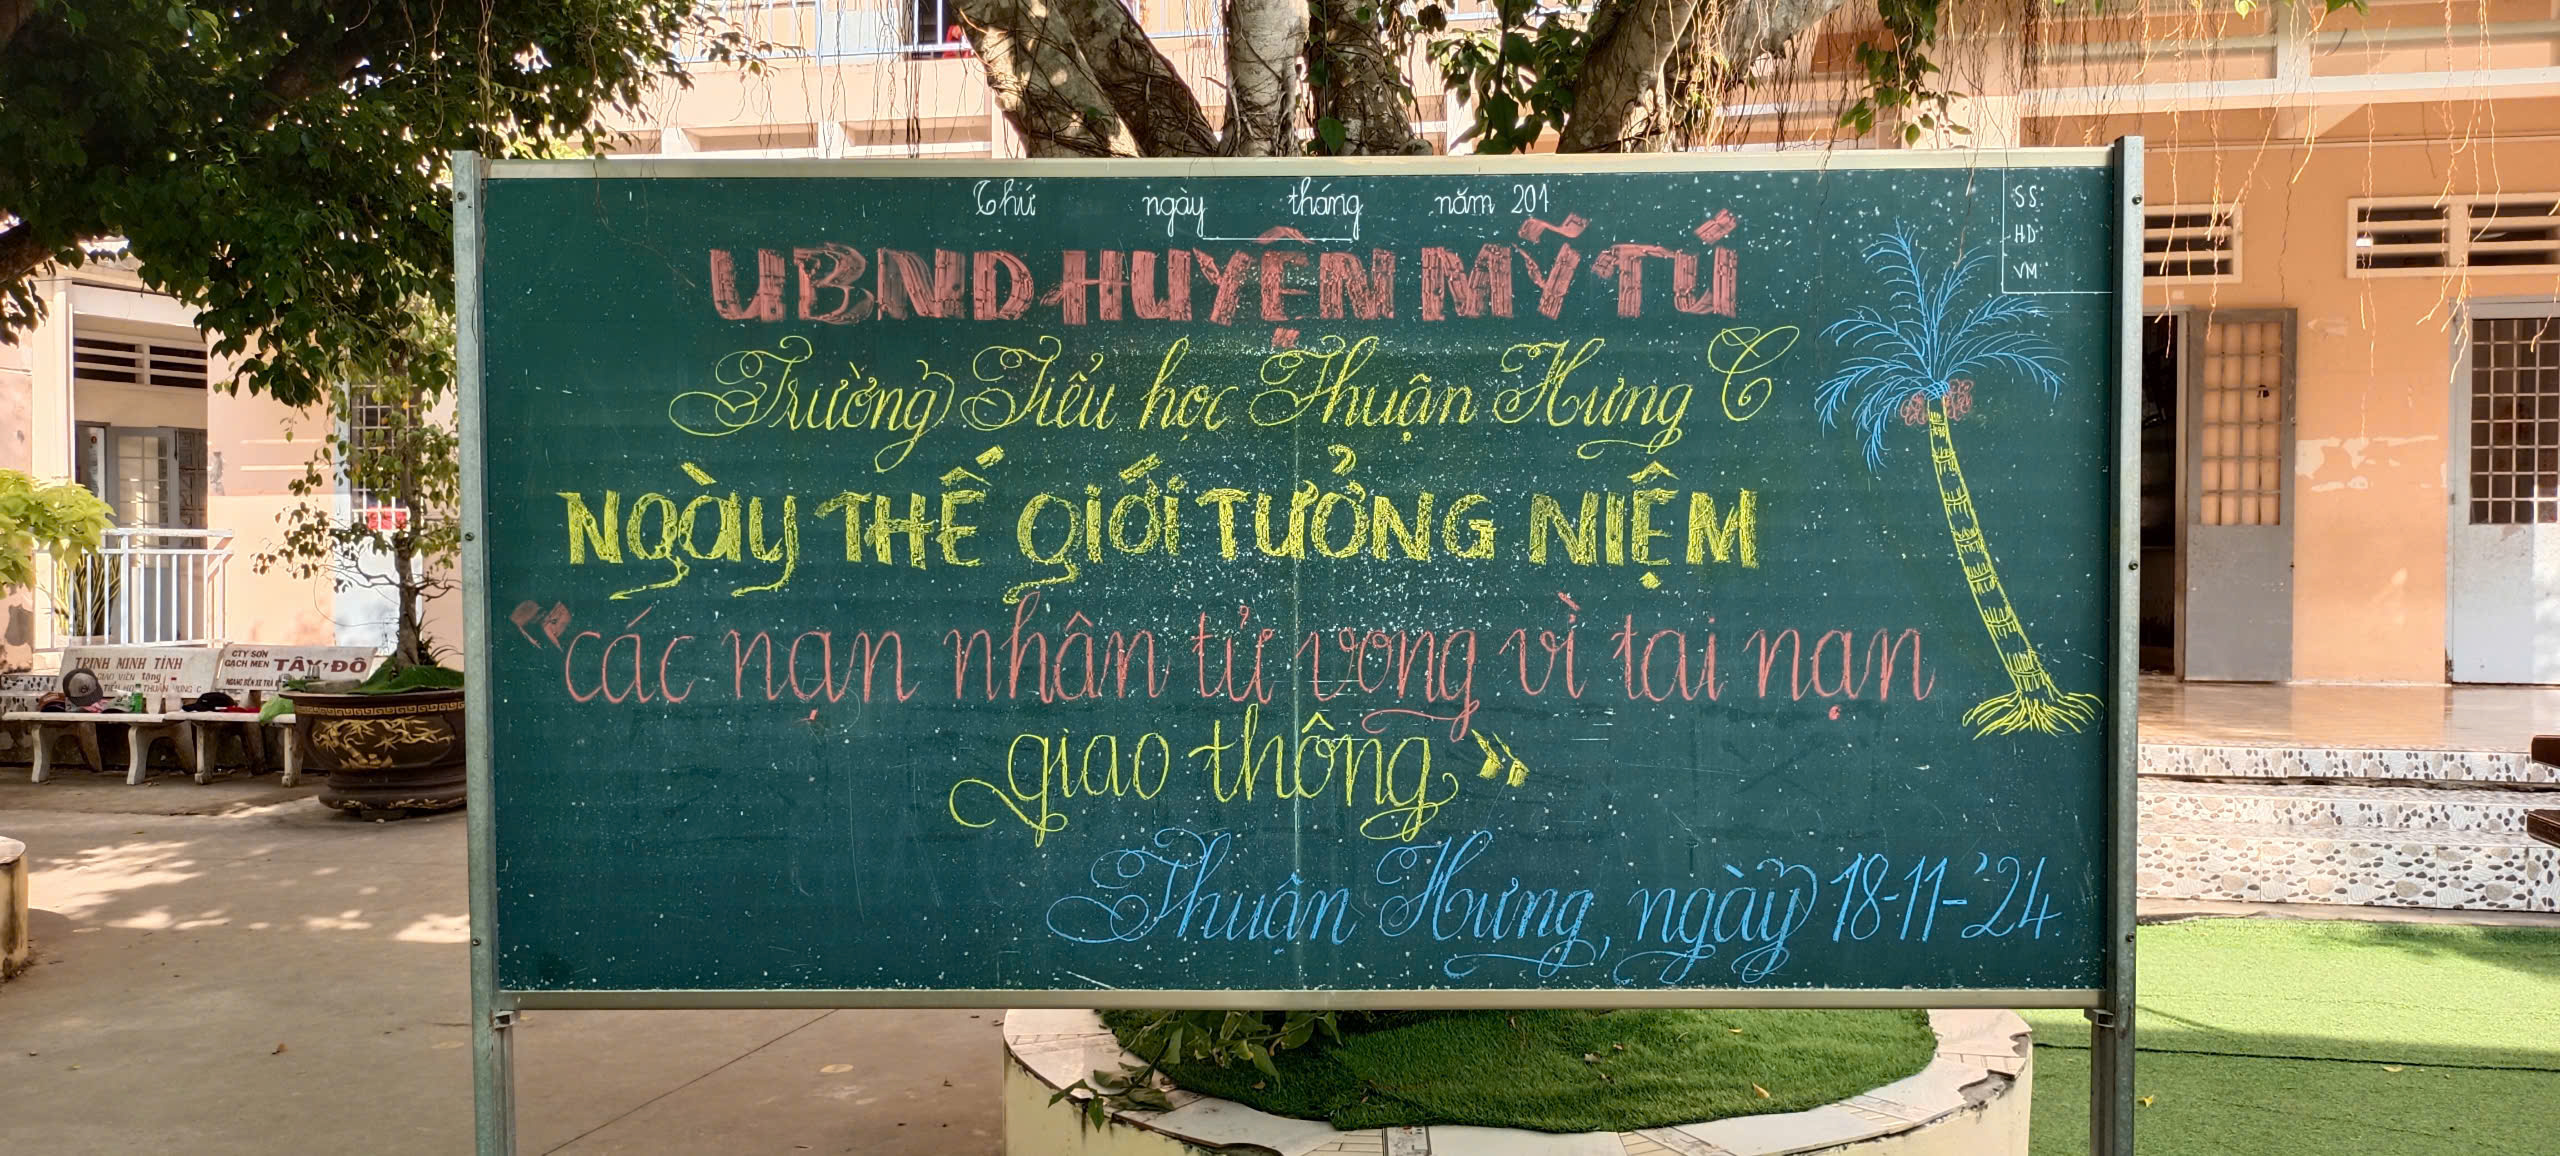 Thứ ngày tháng năm 201
SS:
HD:
VM:
UBND HUYỆN MỸ TÚ
Trường Tiểu học Thuận Hưng C
NGÀY THẾ GIỚI TƯỞNG NIỆM
"các nạn nhân tử vong vì tai nạn
giao thông"
Thuận Hưng, ngày 18-11-'24.
TRỊNH MINH TÍNH
GIÁO VIÊN tặng
TIỂU HỌC THUẬN HƯNG C
CTY SƠN
GẠCH MEN TÂY ĐÔ
NGANG BẾN XE TRÀ